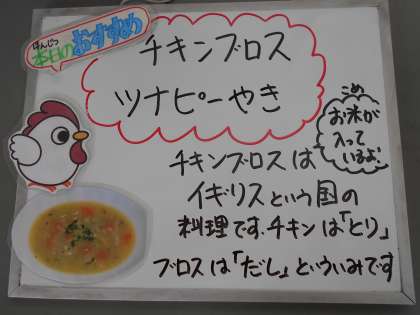 ほんじつ
本日のおすすめ
チキンブロス
ツナピーやき
こめ
お米が
入って
いるよ!
チキンブロスは
イギリスという国の
料理です。チキンは「とり」
ブロスは「だし」といういみです